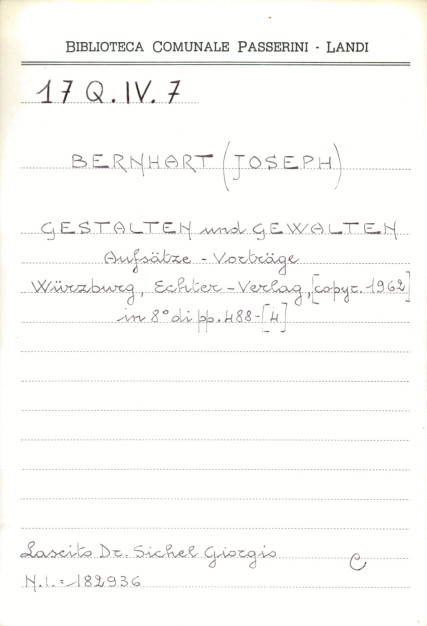 BIBLIOTECA COMUNALE PASSERINI - LANDI
17 Q. IV. 7
BERNHART (JOSEPH)
GESTALTEN und GEWALTEN
Aufsätze - Vorträge
Würzburg, Echter - Verlag, [copyr. 1962]
in 8° di pp. 488-[4]
Lascito Dr. Sichel Giorgio
C
N.I. = 182936